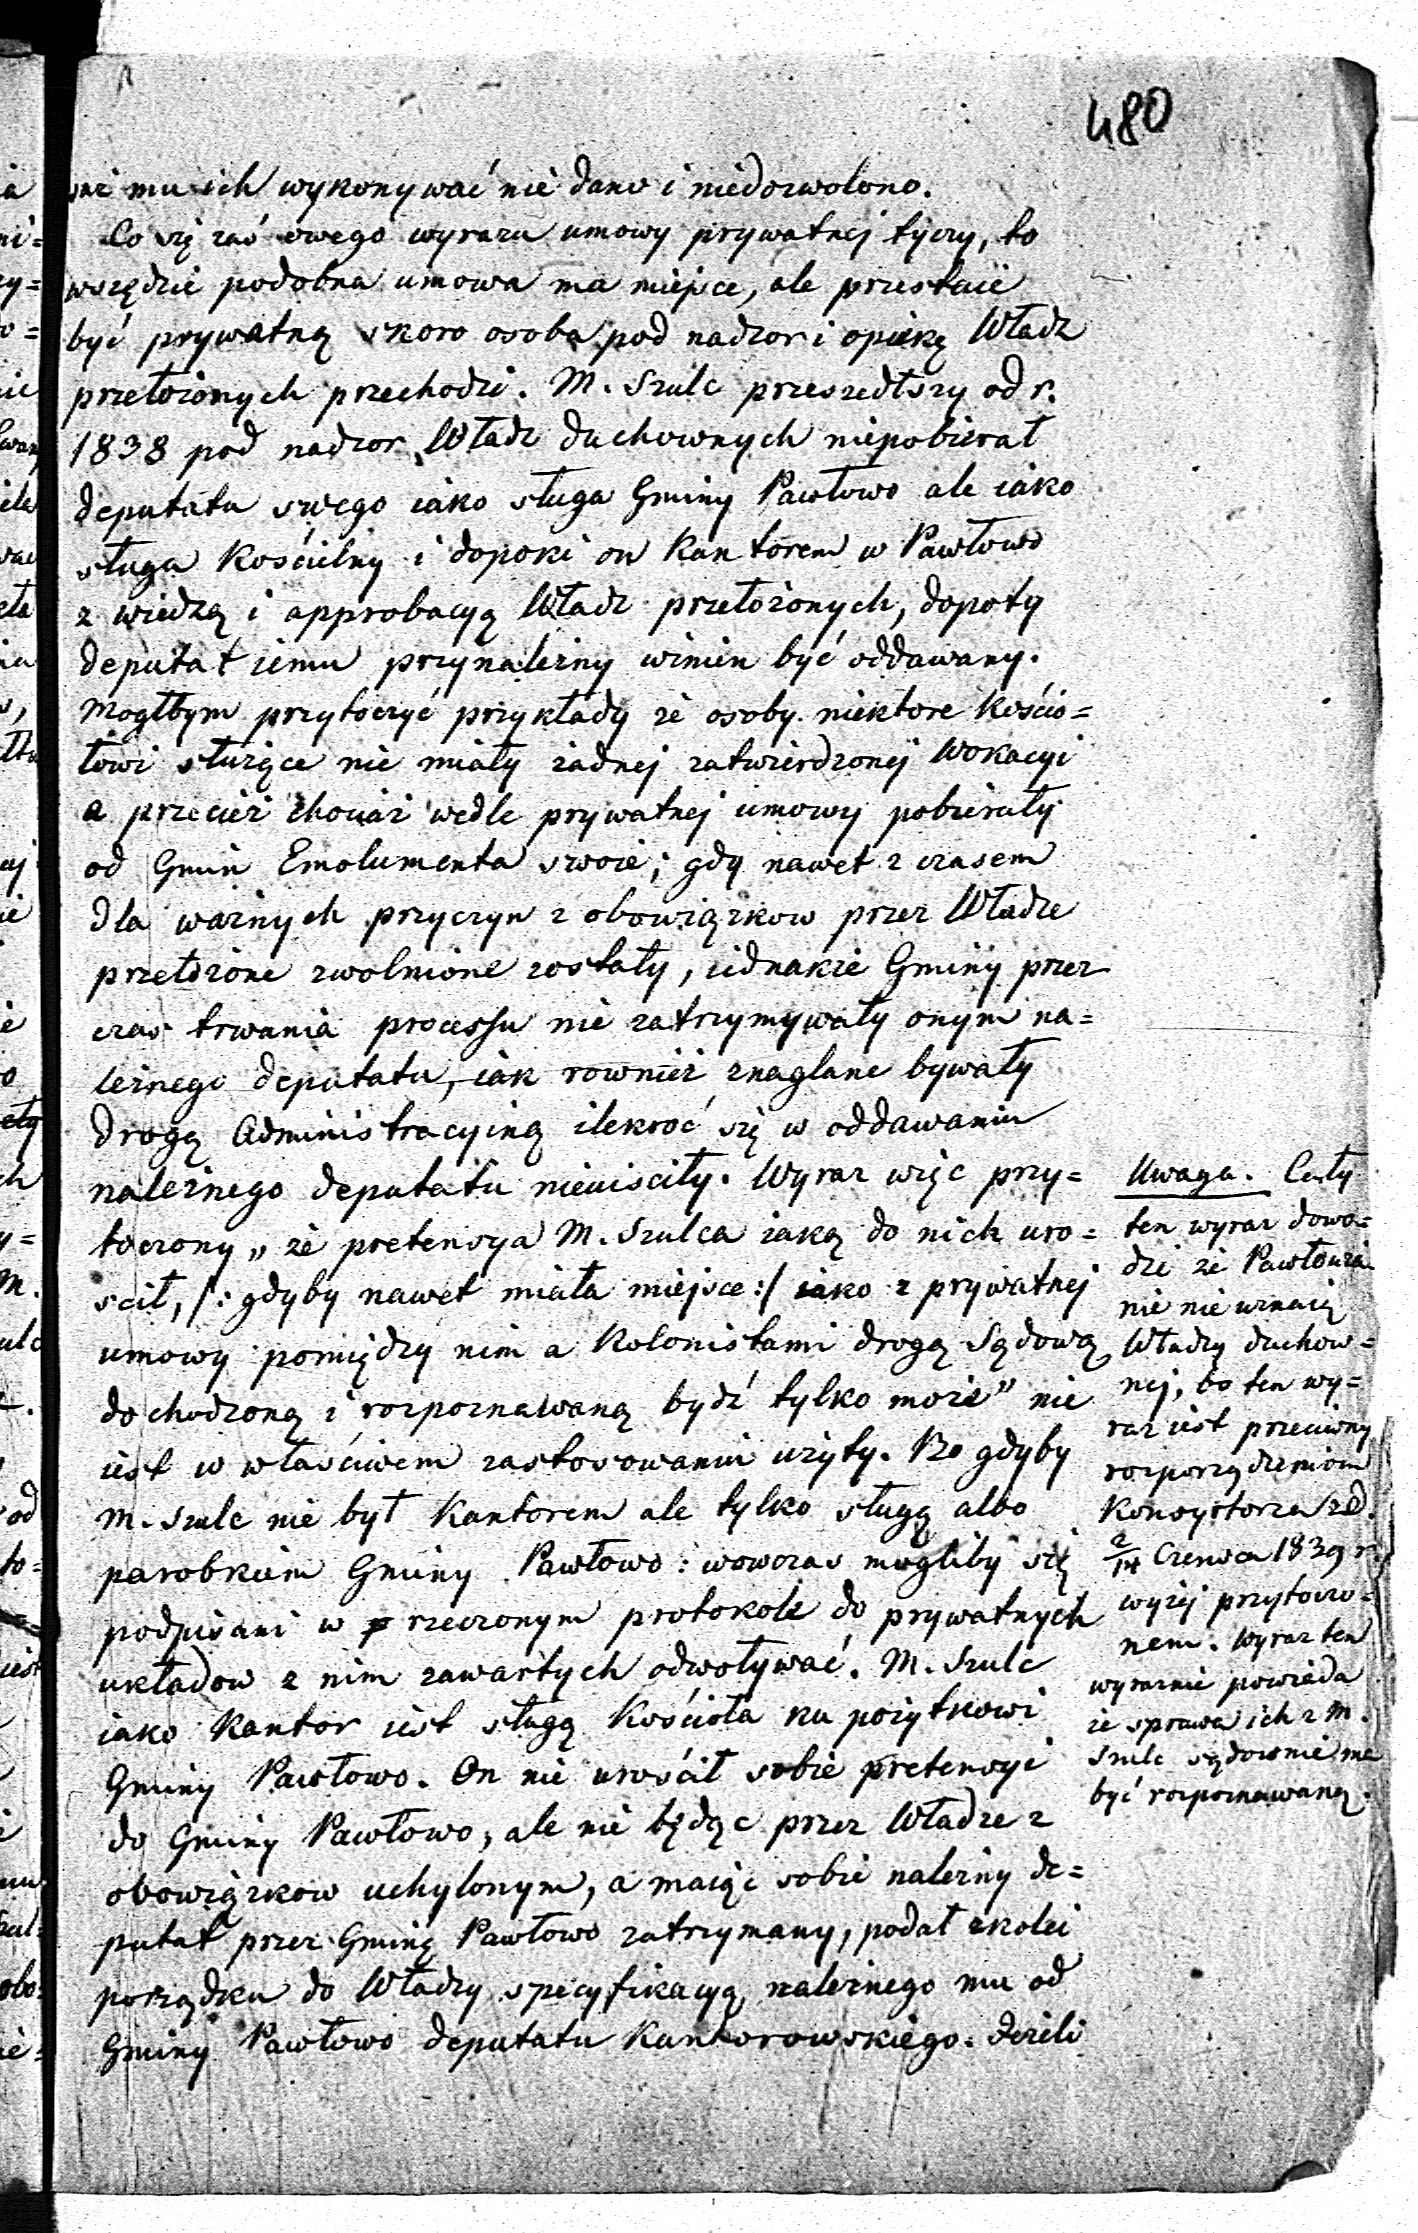 480
mu ich wykonywać nie dano i niedozwolono.
Co się zaś owego wyrazu umowy prywatnej tyczy, to
wszędzie podobna umowa ma miejsce, ale przestaie
być prywatną skoro osoba pod nadzor i opiekę Władz
przełożonych przechodzi. M. Szulc przeszedłszy od r.
1838 pod nadzor Władz duchownych niepobierał
deputatu swego iako sługa Gminy Pawłowo ale iako
sługa Kościelny i dopoki on Kantorem w Pawłowo
z wiedzą i approbacyą Władz przełożonych, dopoty
deputat iemu przynależny winien być oddawany.
Mogłbym przytoczyć przykłady że osoby niektore Kościo=
łowi służące nie miały żadnej zatwierdzonej Wokacyi
a przecież chociaż wedle prywatnej umowy pobierały
od Gmin Emolumenta swoie; gdy nawet z czasem
dla ważnych przyczyn z obowiązkow przez Władze
przełożone zwolnione zostały, iednakże Gminy przez
czas trwania processu nie zatrzymywały onym na=
leżnego deputatu, iak rownież znaglane bywały
drogą Administracyiną ilekroć się w oddawaniu
należnego deputatu nieuisciły. Wyraz więc przy=
toczony „że pretensya M. Szulca iaką do nich uro=
scił, /: gdyby nawet miała miejsce :/ iako z prywatnej
umowy pomiędzy nim a Kolonistami drogą Sądową
dochodzoną i rozpoznawaną bydź tylko może" nie
iest w właściwem zastosowaniu użyty. Bo gdyby
M. Szulc nie był Kantorem ale tylko sługą albo
parobkiem Gminy Pawłowo: wowczas mogliby się
podpisani w rzeczonym protokole do prywatnych
układow z nim zawartych odwoływać. M. Szulc
iako Kantor iest sługą Kościoła ku pożytkowi
Gminy Pawłowo. On nie urościł sobie pretensyi
do Gminy Pawłowo, ale nie będąc przez Władze z
obowiązkow uchylonym, a maiąc sobie należny de=
putat przez Gminę Pawłowo zatrzymany, podał z kolei
porządku do Władzy specyfikacyą należnego mu od
Gminy Pawłowo deputatu Kantorowskiego. Jeżeli
Uwaga. Cały
ten wyraz dowo=
dzi że Pawłowia
nie nie uznaią
Władzy duchow=
nej, bo ten wy=
raz iest przeciwny
rozporządzeniom
Konsystorza z d.
2/14 Czerwca 1839 r.
wyżej przytoczo=
nem. Wyraz ten
wyraznie powiada
że sprawa ich z M.
Szulc sądownie ma
być rozpoznawaną.